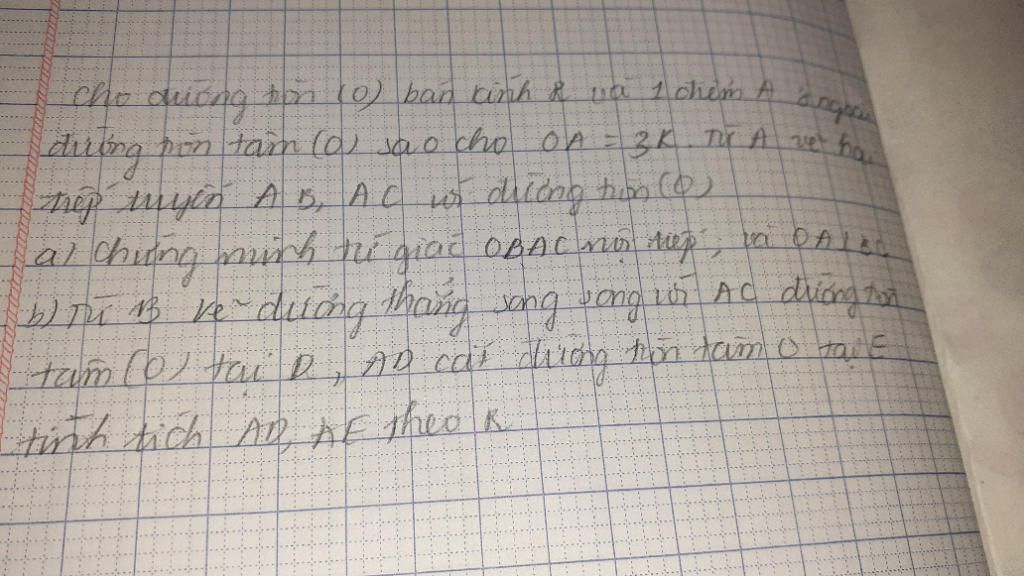 Cho đường tròn (O) bán kính R và 1 điểm A ở ngoài
đường tròn tâm (O) sao cho OA = 3R. Từ A vẽ hai
tiếp tuyến AB, AC với đường tròn (O)
a) Chứng minh tứ giác OBAC nội tiếp, và OA⊥BC
b) Từ B vẽ đường thẳng song song với AC đường tròn
tâm (O) tại D, AD cắt đường tròn tâm O tại E
tính tích AD, AE theo R